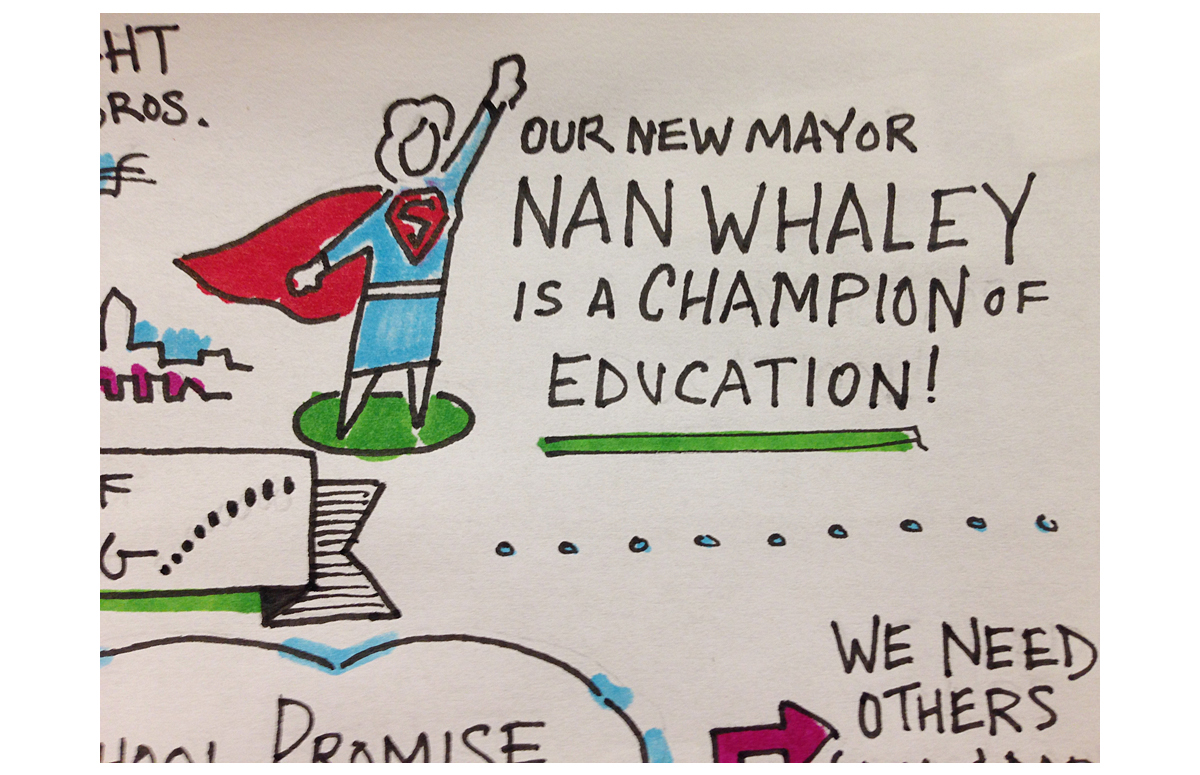 HT
BROS.
S
OUR NEW MAYOR
NAN WHALEY
IS A CHAMPION OF
EDUCATION!
F
G
WE NEED
OTHERS
HOOL PROMISE